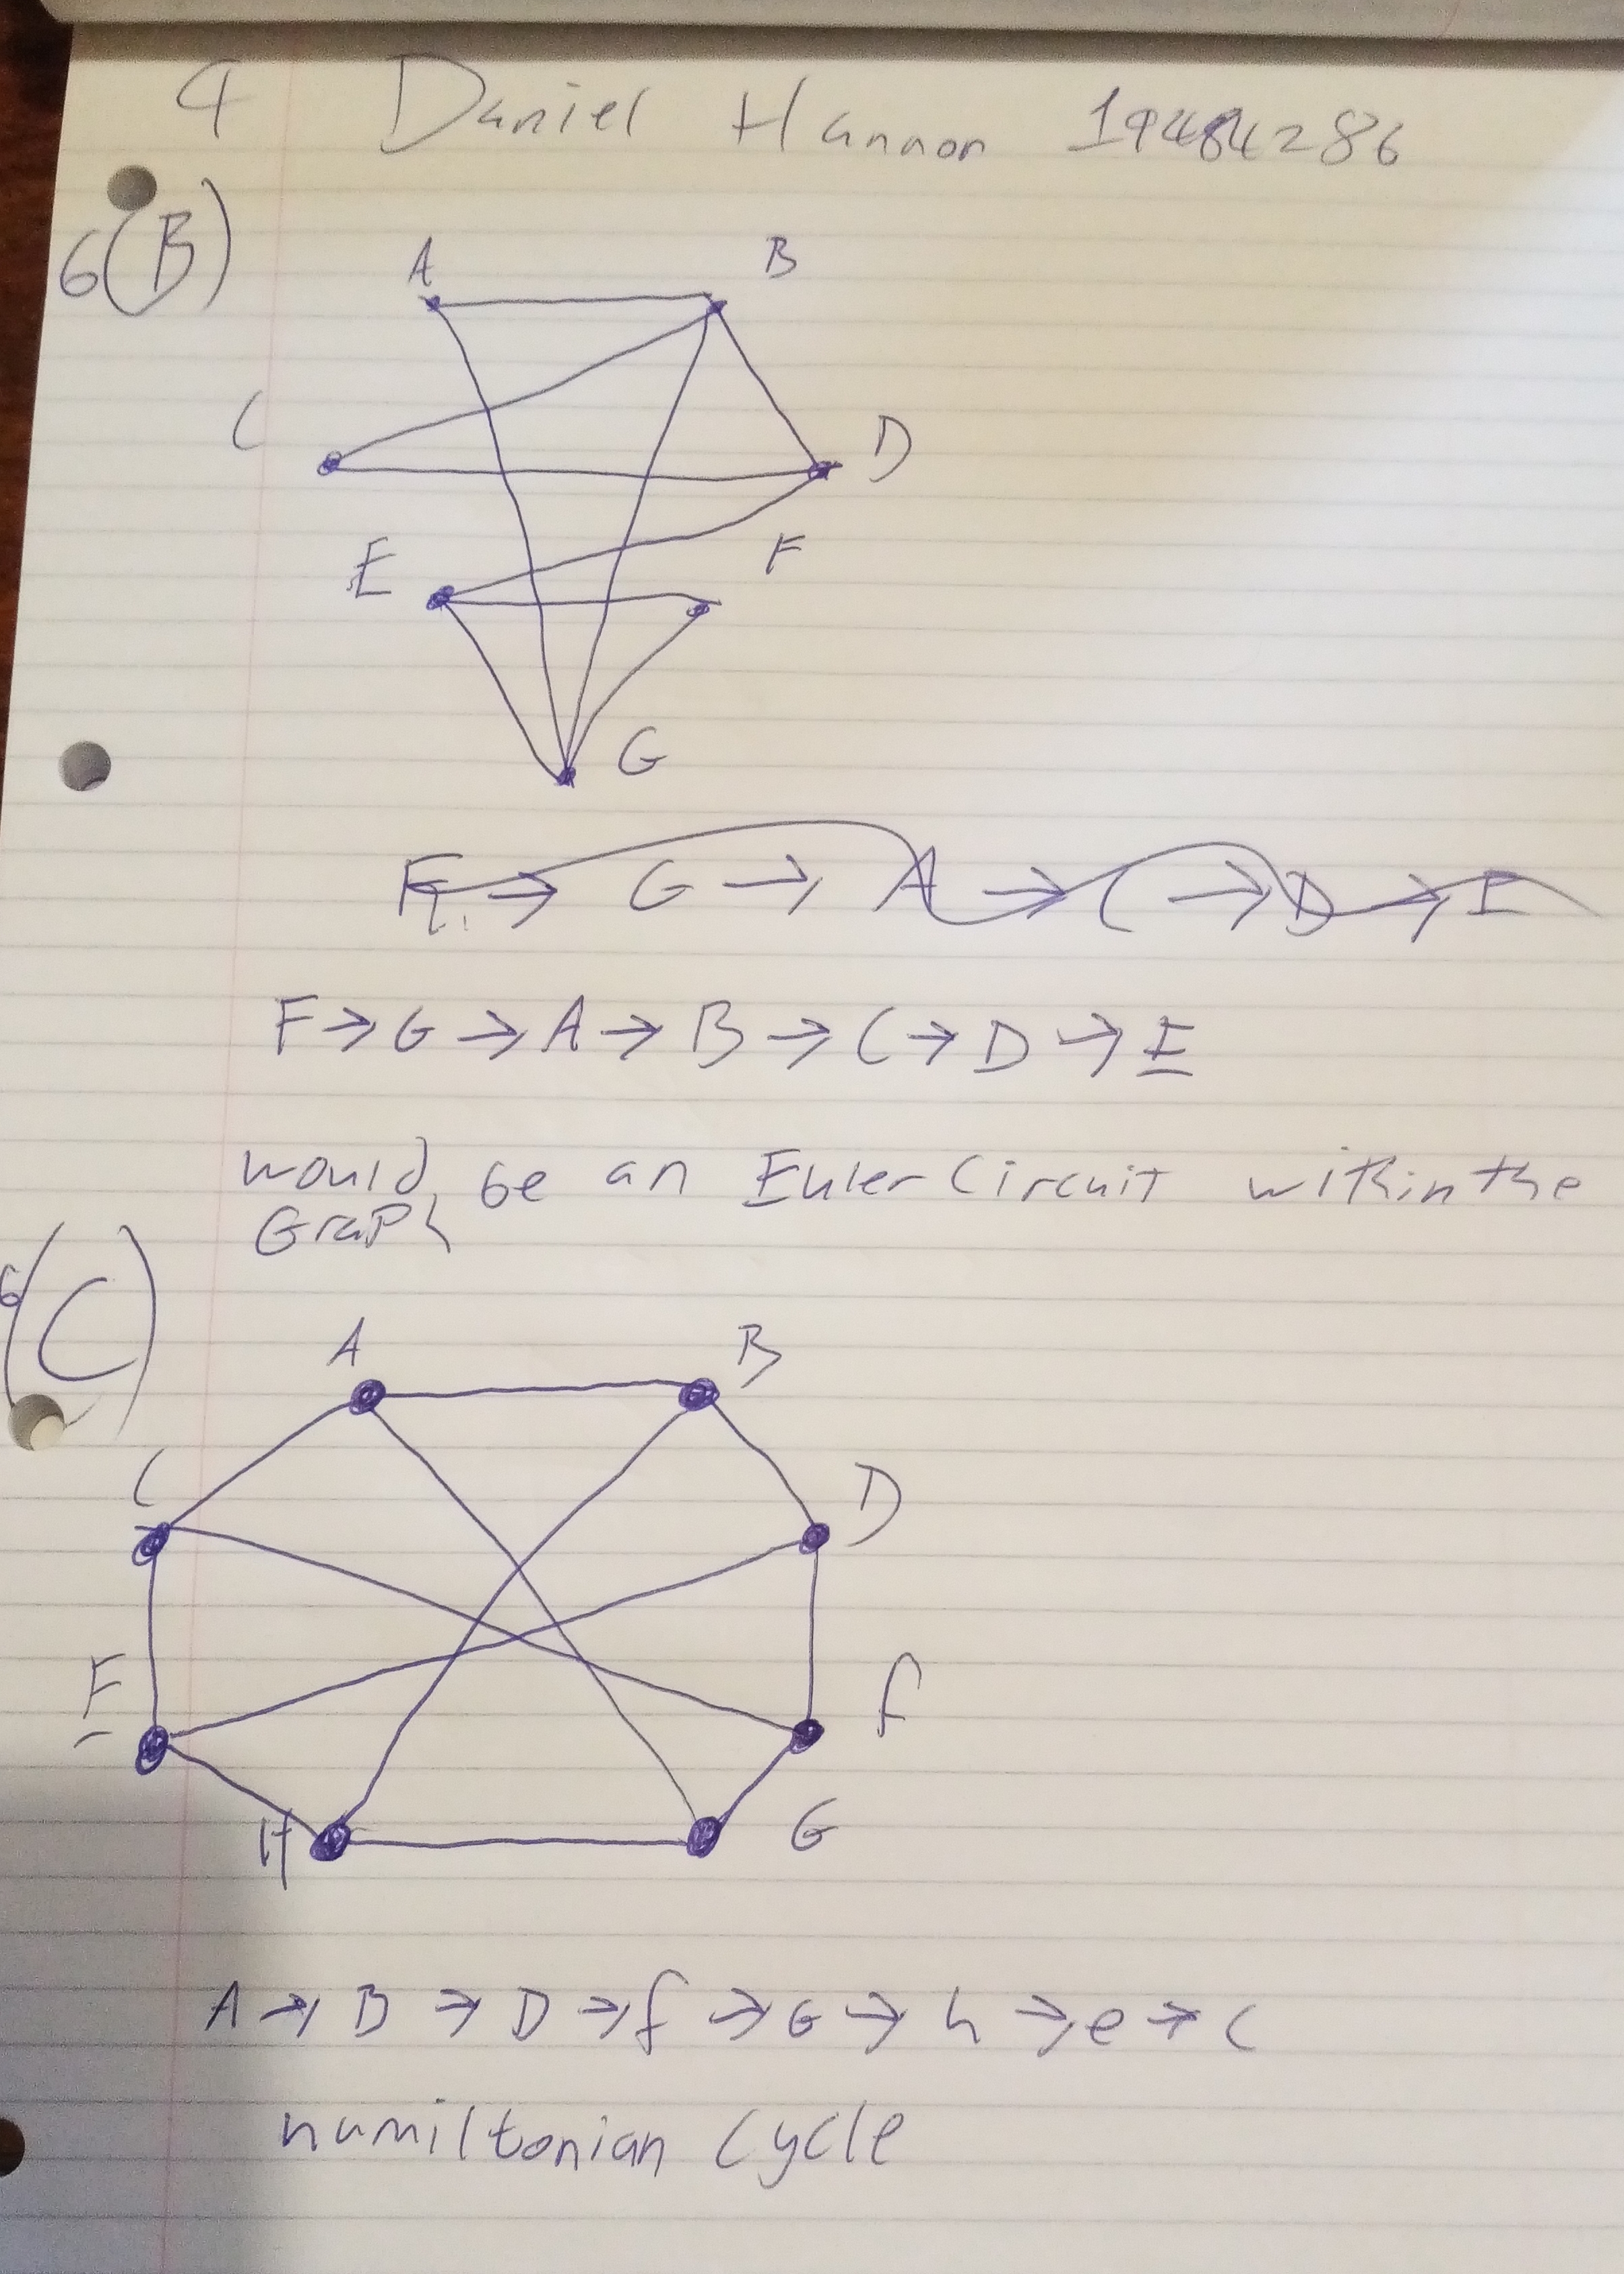 4 Daniel Hannon 19484286
6(B)
A B
C D
E F
G
F → G → A → C → D → E
F → G → A → B → C → D → E
would be an Euler Circuit within the
Graph
6(C)
A B
C D
E f
H G
A → B → D → f → G → h → e → c
hamiltonian Cycle